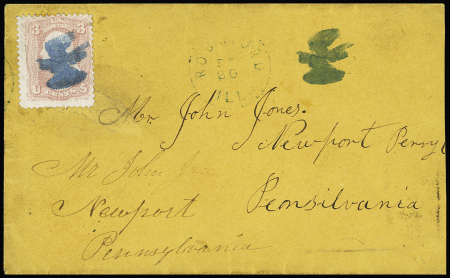 3 3
U S
ROCKFORD
ILL
Mr. John Jones.
Newport Perry
Pensilvania
Mr John
Newport
Pennsylvania